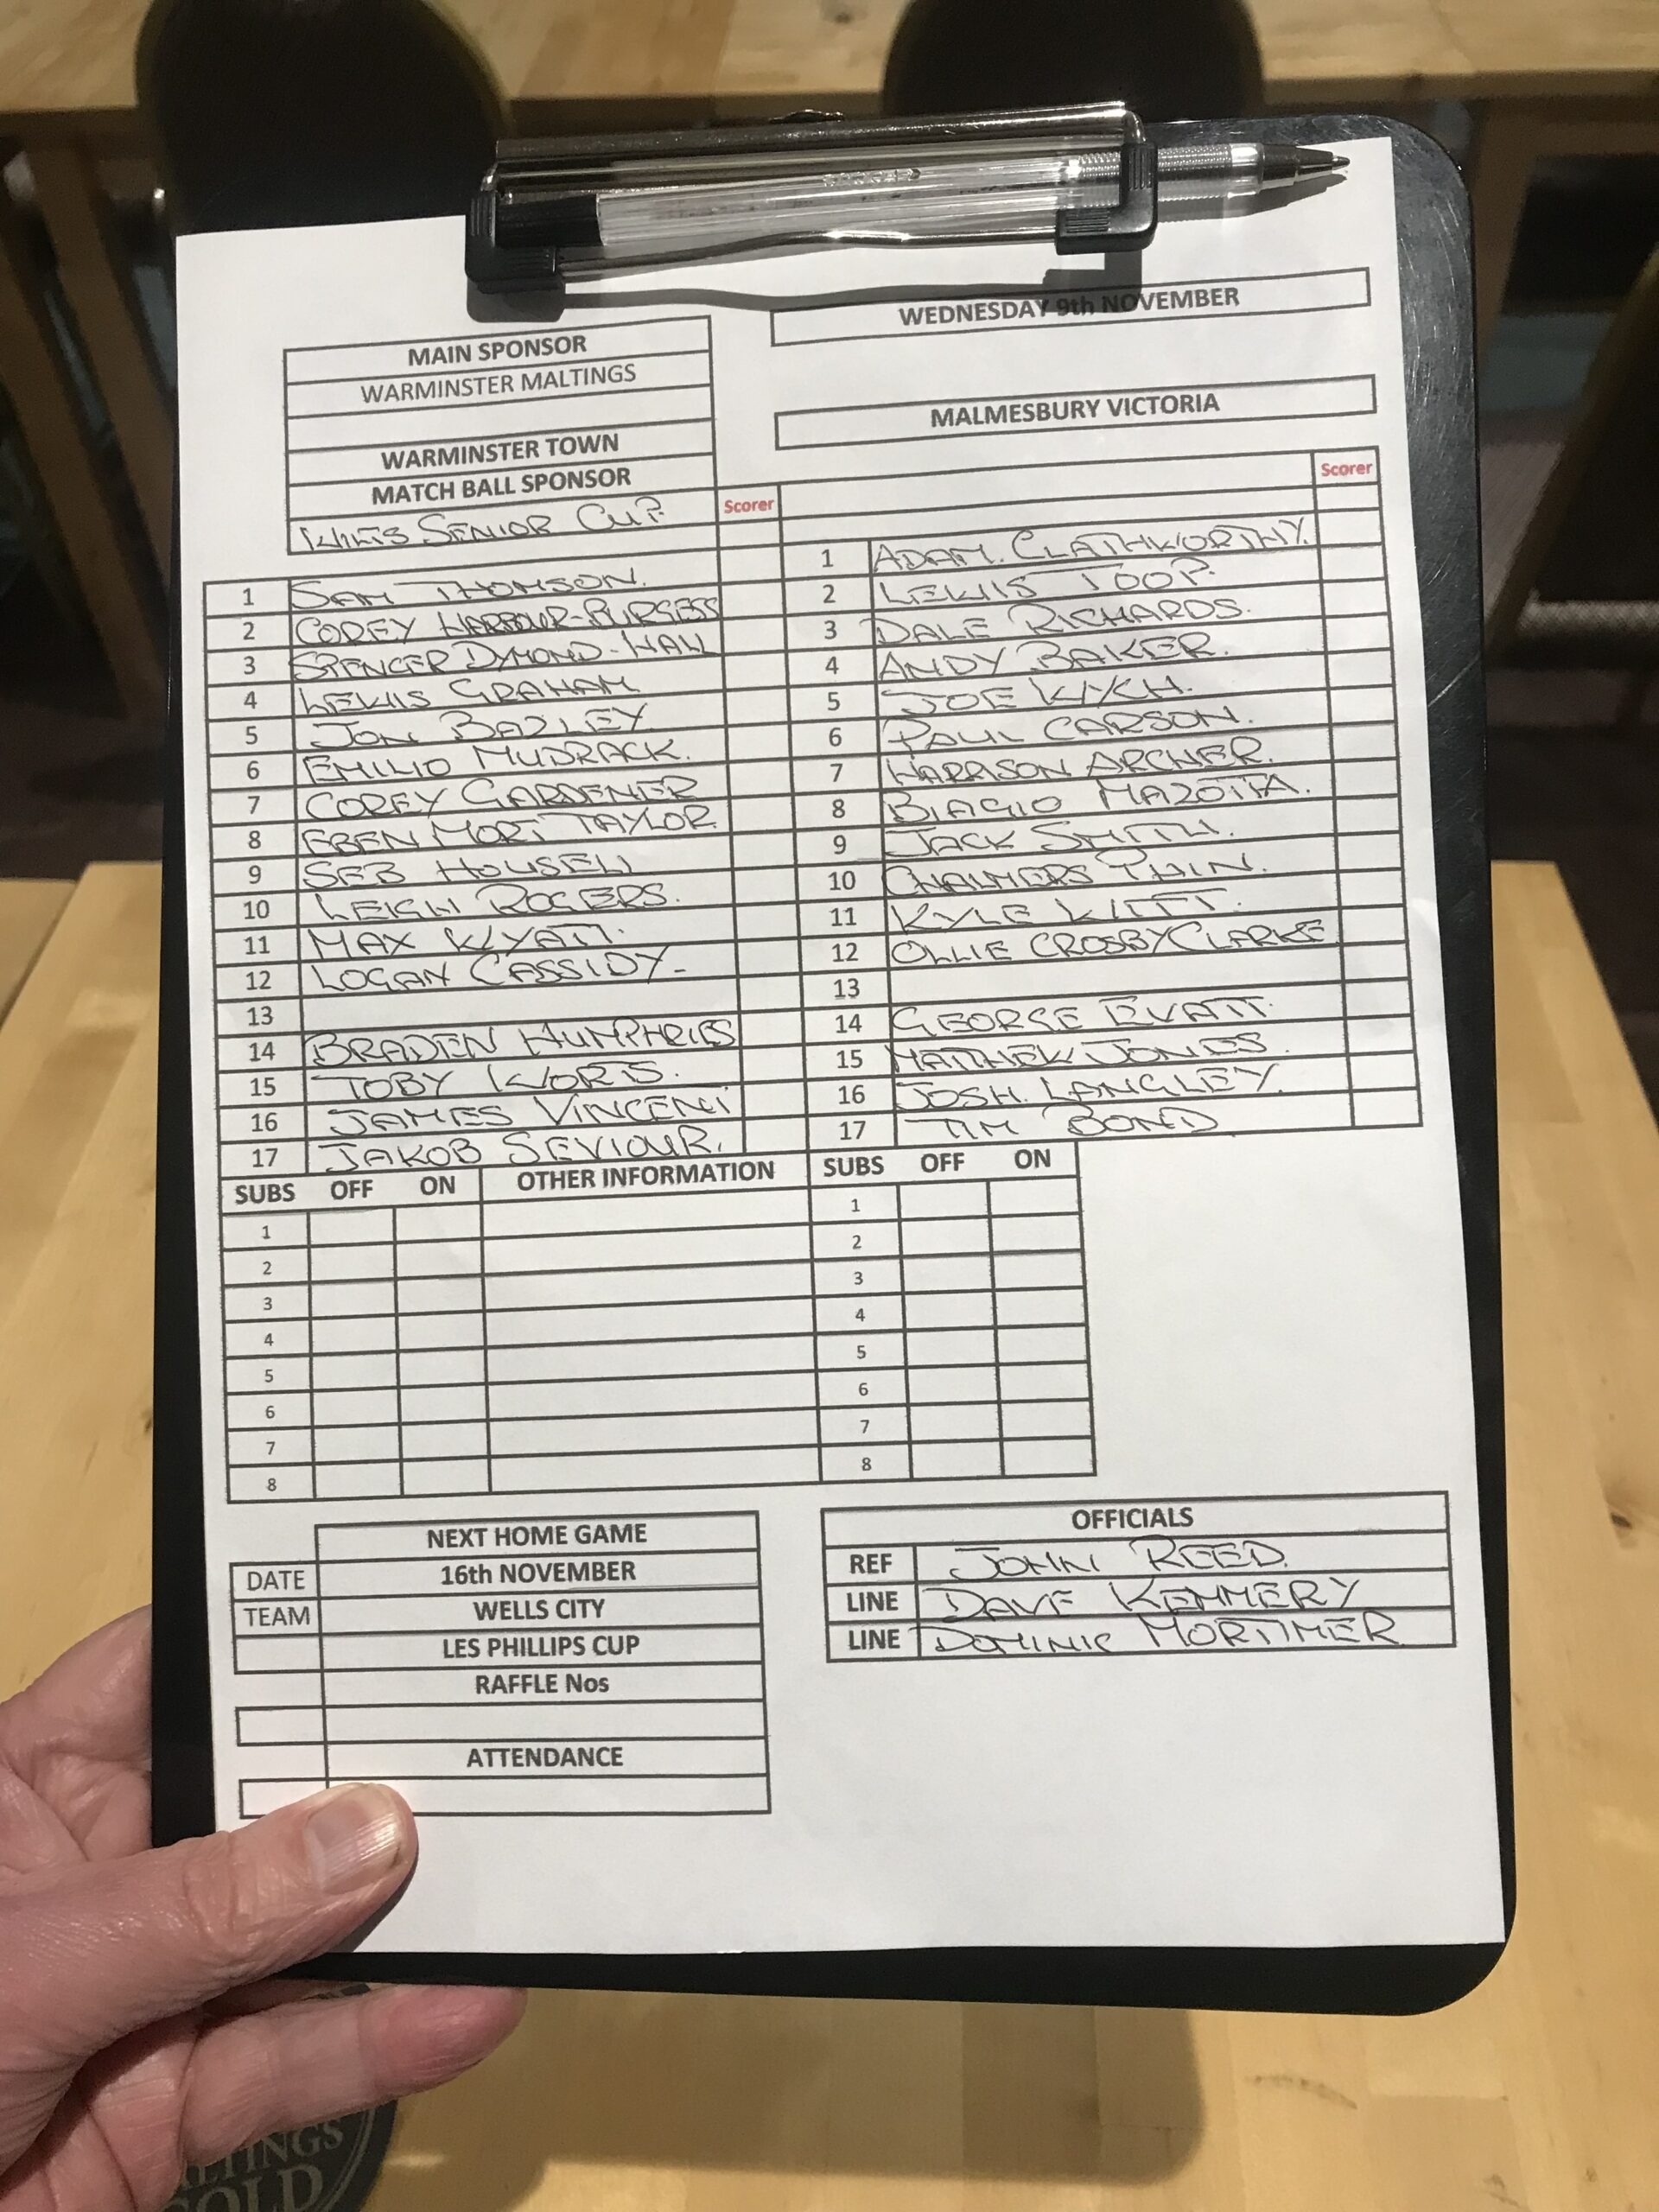 WEDNESDAY 9th NOVEMBER
MAIN SPONSOR
WARMINSTER MALTINGS
MALMESBURY VICTORIA
WARMINSTER TOWN
MATCH BALL SPONSOR
WILTS SENIOR CUP.
Scorer
Scorer
1 SAM THOMSON.
2 COREY HARBOUR-BURGESS
3 SPENCER DYMOND-HALL
4 LEWIS GRAHAM
5 JON BAZLEY
6 EMILIO MUDRACK.
7 COREY GARDENER
8 EBEN MORT TAYLOR
9 SEB HOUSELL
10 LEIGH ROGERS.
11 MAX WYATT.
12 LOGAN CASSIDY-
13
14 BRADEN HUMPHRIES
15 TOBY WORTS.
16 JAMES VINCENT
17 JAKOB SEVIOUR.
1 ADAM. CLATHWORTHY.
2 LEWIS TOOP.
3 DALE RICHARDS.
4 ANDY BAKER.
5 JOE WYCH.
6 PAUL CARSON.
7 HARRISON ARCHER.
8 BIAGIO MAZOTTA.
9 JACK SMITH.
10 CHALMERS THIN.
11 KYLE KITT.
12 OLLIE CROSBY CLARKE
13
14 GEORGE EVATT.
15 MATTHEW JONES.
16 JOSH. LANGLEY.
17 TIM BOND
SUBS OFF ON OTHER INFORMATION SUBS OFF ON
1 1
2 2
3 3
4 4
5 5
6 6
7 7
8 8
NEXT HOME GAME
DATE 16th NOVEMBER
TEAM WELLS CITY
LES PHILLIPS CUP
RAFFLE Nos
ATTENDANCE
OFFICIALS
REF JOHN REED.
LINE DAVE KEMMERY
LINE DOMINIC MORTIMER